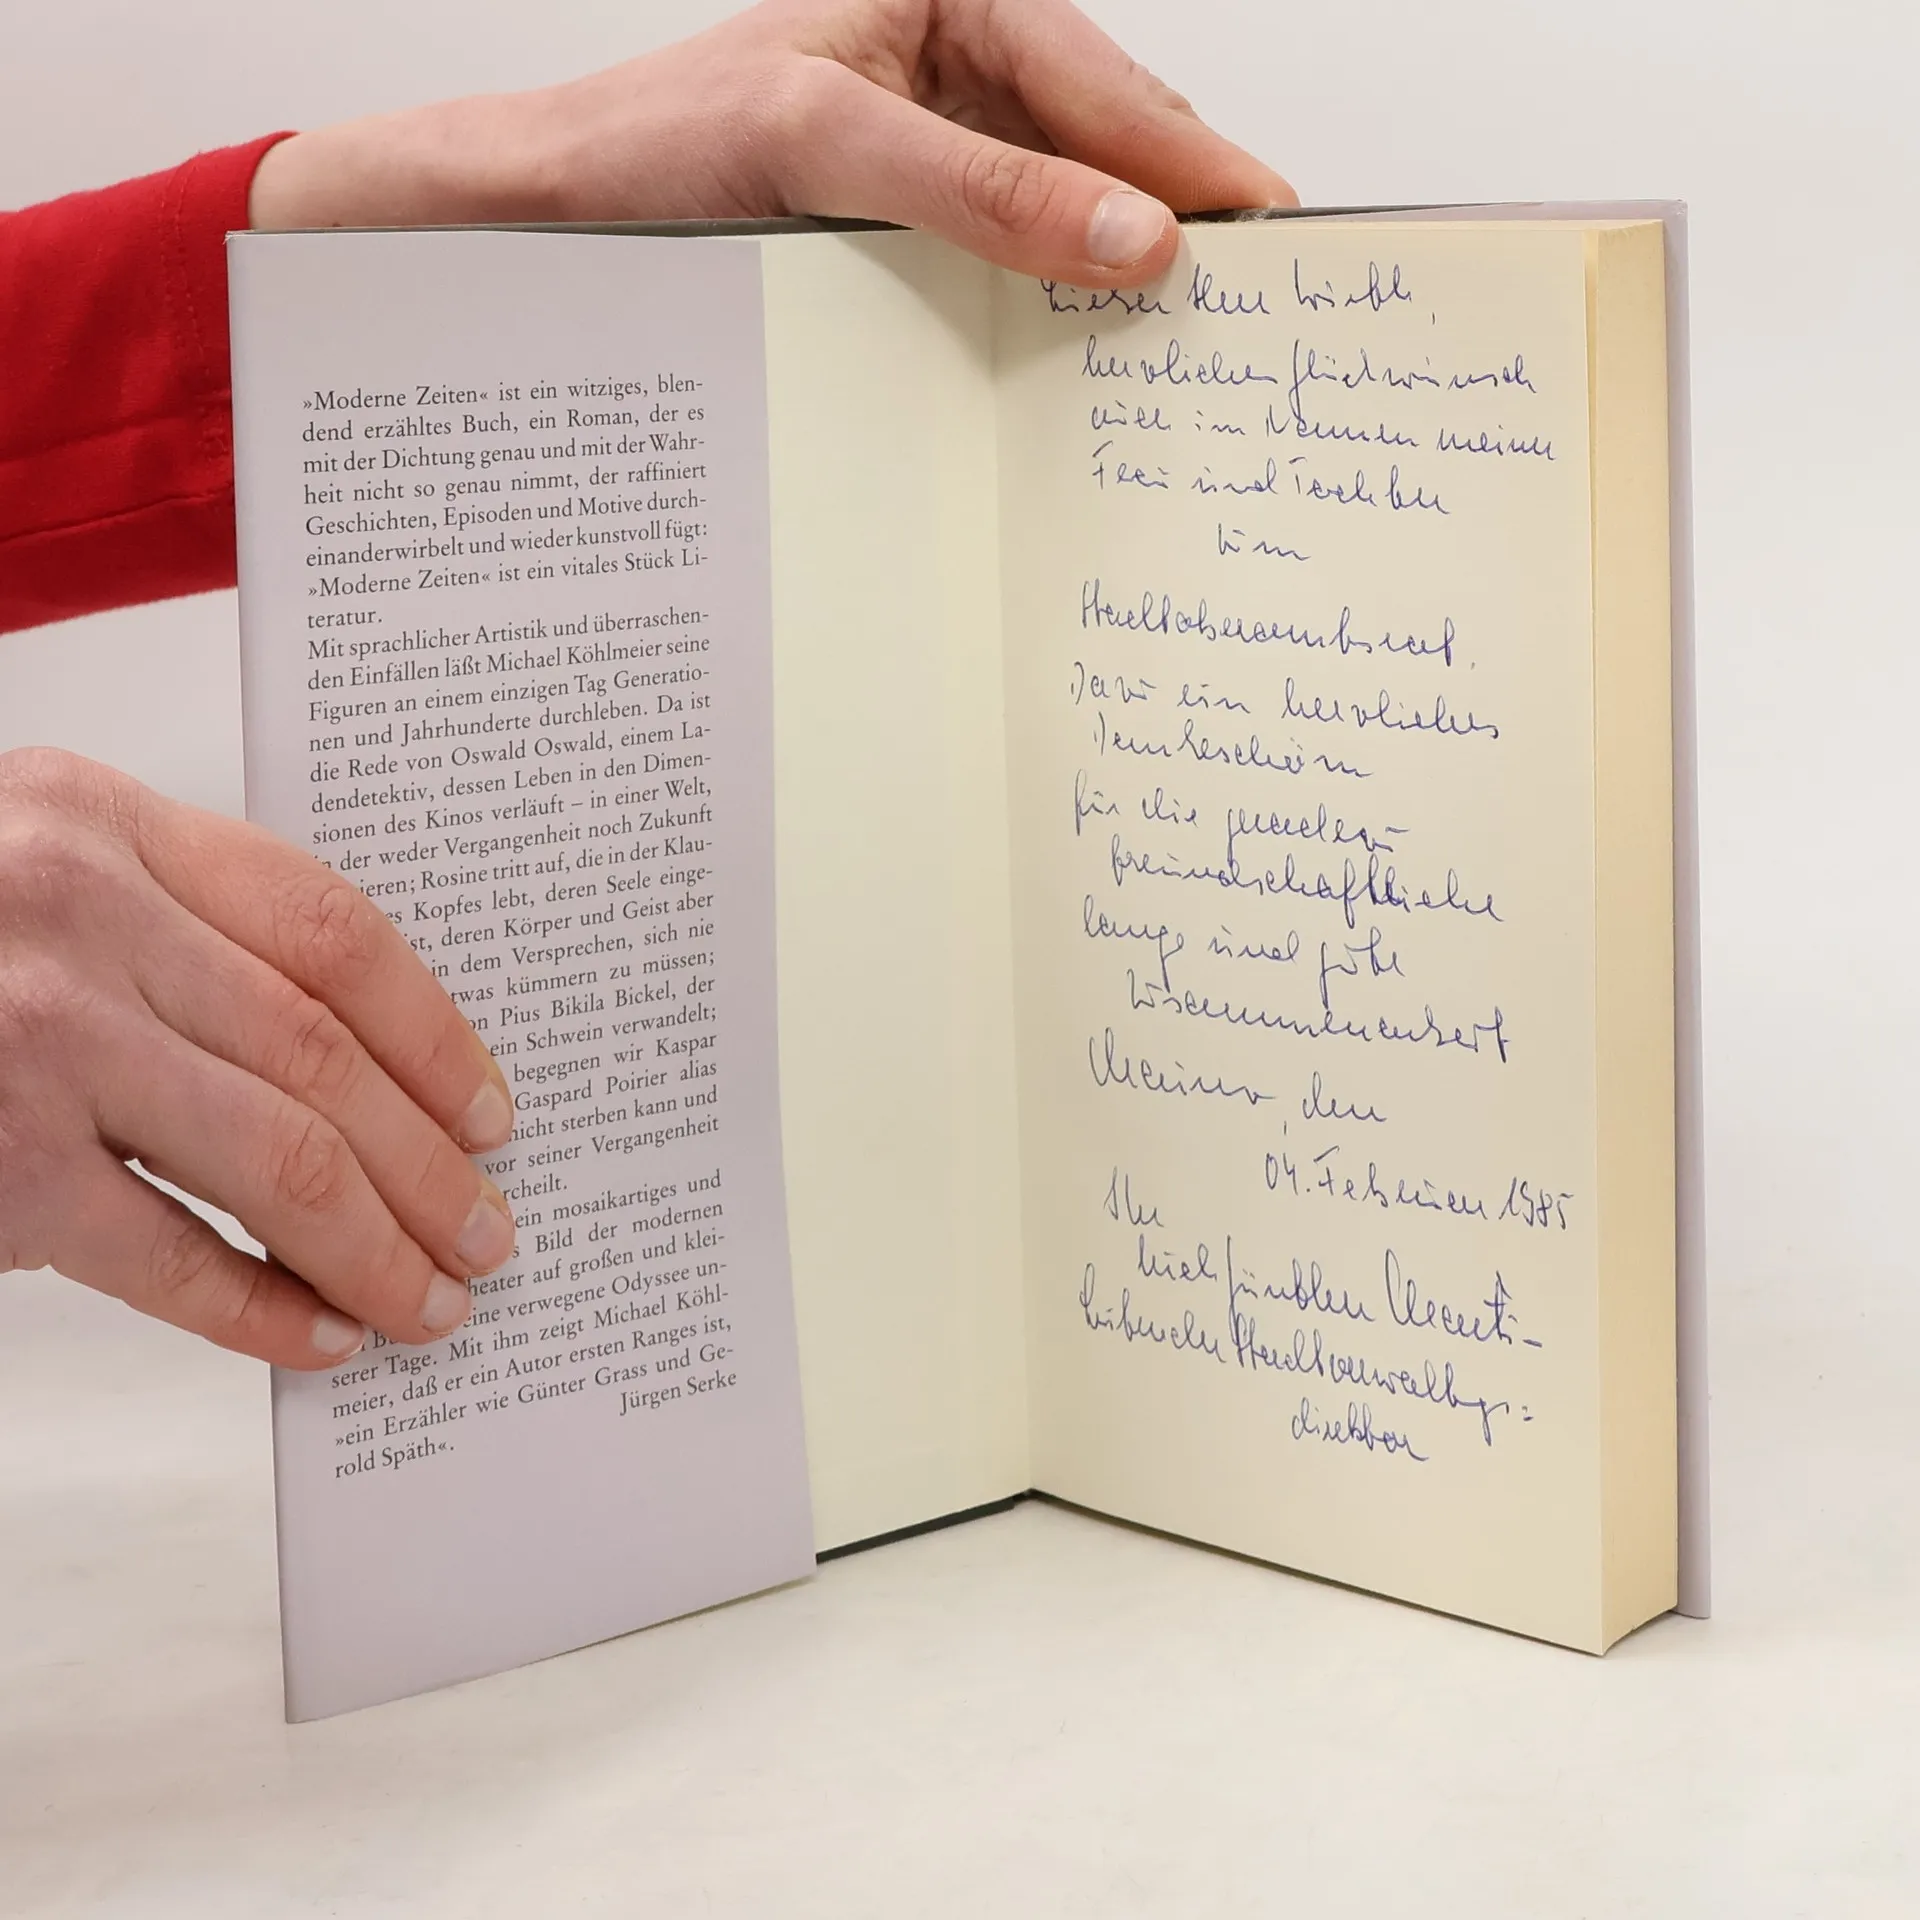 »Moderne Zeiten« ist ein witziges, blen-
dend erzähltes Buch, ein Roman, der es
mit der Dichtung genau und mit der Wahr-
heit nicht so genau nimmt, der raffiniert
Geschichten, Episoden und Motive durch-
einanderwirbelt und wieder kunstvoll fügt:
»Moderne Zeiten« ist ein vitales Stück Li-
teratur.
Mit sprachlicher Artistik und überraschen-
den Einfällen läßt Michael Köhlmeier seine
Figuren an einem einzigen Tag Generatio-
nen und Jahrhunderte durchleben. Da ist
die Rede von Oswald Oswald, einem La-
dendetektiv, dessen Leben in den Dimen-
sionen des Kinos verläuft – in einer Welt,
in der weder Vergangenheit noch Zukunft
ieren; Rosine tritt auf, die in der Klau-
es Kopfes lebt, deren Seele einge-
ist, deren Körper und Geist aber
in dem Versprechen, sich nie
twas kümmern zu müssen;
on Pius Bikila Bickel, der
ein Schwein verwandelt;
begegnen wir Kaspar
Gaspard Poirier alias
nicht sterben kann und
vor seiner Vergangenheit
rcheilt.
ein mosaikartiges und
s Bild der modernen
heater auf großen und klei-
eine verwegene Odyssee un-
serer Tage. Mit ihm zeigt Michael Köhl-
meier, daß er ein Autor ersten Ranges ist,
»ein Erzähler wie Günter Grass und Ge-
rold Späth«.
Jürgen Serke
Lieber Herr
herzlichen Glückwunsch
auch im Namen meiner
Frau und Tochter
zum
Stadtoberamtsrat.
Dazu ein herzliches
Dankeschön
für die geradezu
freundschaftliche
lange und gute
Zusammenarbeit
Mainz, den
04. Februar 1985
Ihr
nach fünften Amts-
Leitender Stadtverwaltungs-
direktor